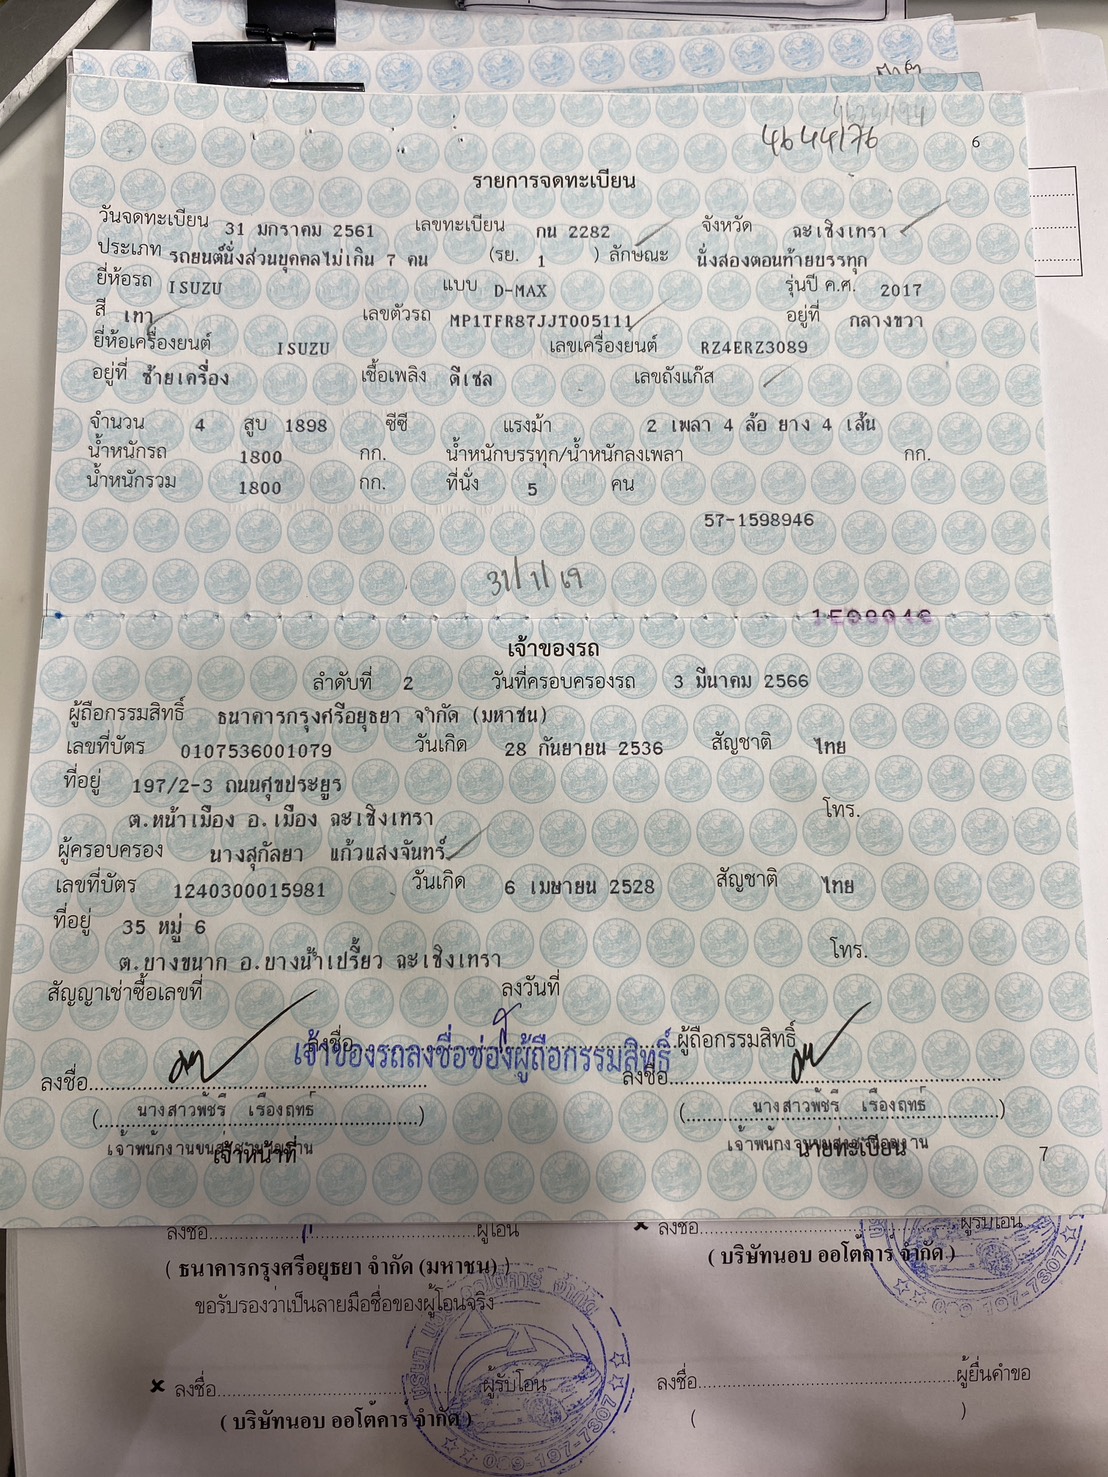 4644176
6
รายการจดทะเบียน
วันจดทะเบียน 31 มกราคม 2561 เลขทะเบียน กน 2282 จังหวัด ฉะเชิงเทรา
ประเภท รถยนต์นั่งส่วนบุคคลไม่เกิน 7 คน (รย. 1 ) ลักษณะ นั่งสองตอนท้ายบรรทุก
ยี่ห้อรถ ISUZU แบบ D-MAX รุ่นปี ค.ศ. 2017
สี เทา เลขตัวรถ MP1TFR87JJT005111 อยู่ที่ กลางขวา
ยี่ห้อเครื่องยนต์ ISUZU เลขเครื่องยนต์ RZ4ERZ3089
อยู่ที่ ซ้ายเครื่อง เชื้อเพลิง ดีเซล เลขถังแก๊ส
จำนวน 4 สูบ 1898 ซีซี แรงม้า 2 เพลา 4 ล้อ ยาง 4 เส้น
น้ำหนักรถ 1800 กก. น้ำหนักบรรทุก/น้ำหนักลงเพลา กก.
น้ำหนักรวม 1800 กก. ที่นั่ง 5 คน
57-1598946
31/1/69
เจ้าของรถ
ลำดับที่ 2 วันที่ครอบครองรถ 3 มีนาคม 2566
ผู้ถือกรรมสิทธิ์ ธนาคารกรุงศรีอยุธยา จำกัด (มหาชน)
เลขที่บัตร 0107536001079 วันเกิด 28 กันยายน 2536 สัญชาติ ไทย
ที่อยู่ 197/2-3 ถนนศุขประยูร
ต.หน้าเมือง อ.เมือง ฉะเชิงเทรา โทร.
ผู้ครอบครอง นางสุกัลยา แก้วแสงจันทร์
เลขที่บัตร 1240300015981 วันเกิด 6 เมษายน 2528 สัญชาติ ไทย
ที่อยู่ 35 หมู่ 6
ต.บางขนาก อ.บางน้ำเปรี้ยว ฉะเชิงเทรา โทร.
สัญญาเช่าซื้อเลขที่ ลงวันที่
ลงชื่อ ผู้ถือกรรมสิทธิ์
เจ้าของรถลงชื่อช่องผู้ถือกรรมสิทธิ์
ลงชื่อ ลงชื่อ
( นางสาวพัชรี เรืองฤทธ์ ) ( นางสาวพัชรี เรืองฤทธ์ )
เจ้าพนักงานขนส่งชำนาญงาน เจ้าพนักงานขนส่งชำนาญงาน
เจ้าหน้าที่ นายทะเบียน
7
ลงชื่อ ผู้โอน × ลงชื่อ ผู้รับโอน
( ธนาคารกรุงศรีอยุธยา จำกัด (มหาชน) ) ( บริษัทนอบ ออโต้คาร์ จำกัด )
ขอรับรองว่าเป็นลายมือชื่อของผู้โอนจริง
× ลงชื่อ ผู้รับโอน ลงชื่อ ผู้ยื่นคำขอ
( บริษัทนอบ ออโต้คาร์ จำกัด ) ( )